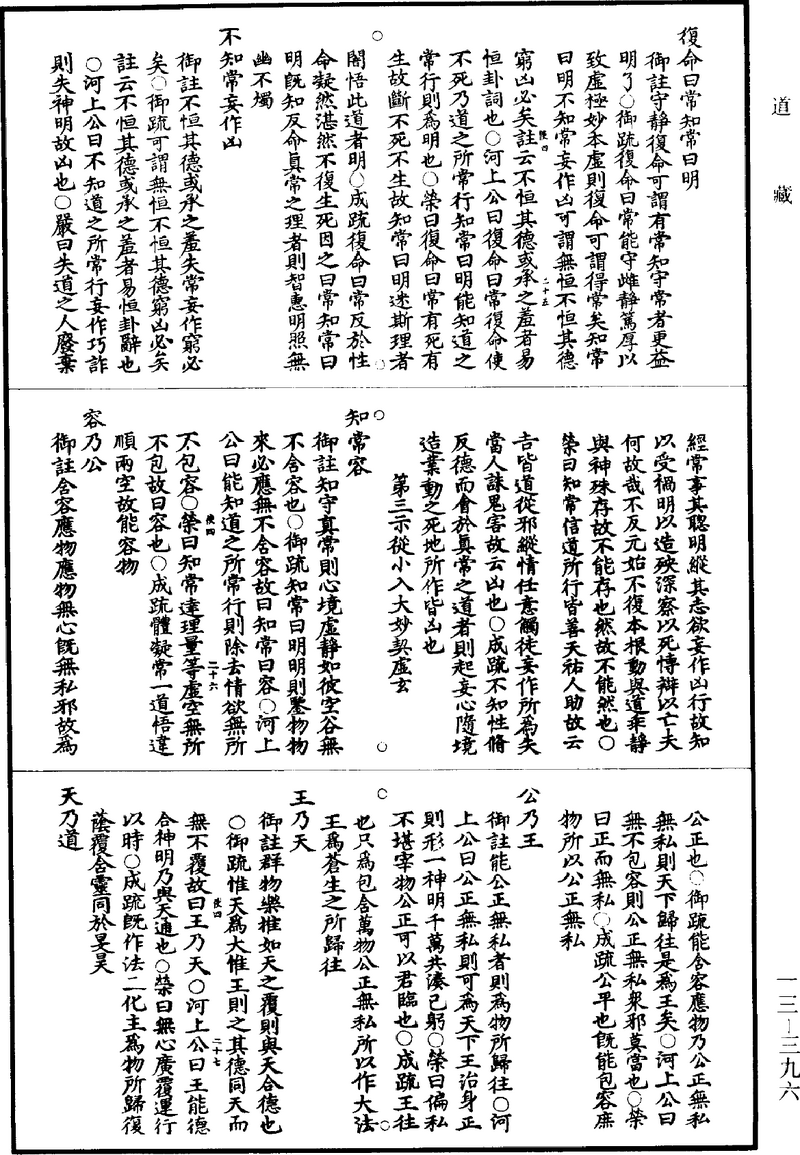 道藏
復命曰常知常曰明
御註守靜復命可謂有常知守常者更益
明了○御疏復命曰常能守雌靜篤厚以
致虛極妙本虛則復命可謂得常矣知常
曰明不知常妄作凶可謂無恒不恒其德
窮凶必矣註云不恒其德或承之羞者易
恒卦詞也○河上公曰復命曰常復命使
不死乃道之所常行知常曰明能知道之
常行則為明也○榮曰復命曰常有死有
生故斷不死不生故知常曰明迷斯理者
闇悟此道者明○成疏復命曰常反於性
命凝然湛然不復生死因之曰常知常曰
明既知反命真常之理者則智惠明照無
幽不燭
不知常妄作凶
御註不恒其德或承之羞失常妄作窮必
矣○御疏可謂無恒不恒其德窮凶必矣
註云不恒其德或承之羞者易恒卦辭也
○河上公曰不知道之所常行妄作巧詐
則失神明故凶也○嚴曰失道之人廢棄
經常事其聰明縱其志欲妄作凶行故知
以受禍明以造殃深察以死博辯以亡夫
何故哉不反元始不復本根動與道乖靜
與神殊存故不能存也然故不能然也○
榮曰知常信道所行皆善天祐人助故云
吉皆道從邪縱情任意觸徒妄作所為失
當人誅鬼害故云凶也○成疏不知性脩
反德而會於真常之道者則起妄心隨境
造業動之死地所作皆凶也
第三示從小入大妙契虛玄
知常容
御註知守真常則心境虛靜如彼空谷無
不含容也○御疏知常曰明明則鑒物物
來必應無不含容故曰知常曰容○河上
公曰能知道之所常行則除去情欲無所
不包容○榮曰知常達理量等虛空無所
不包故曰容也○成疏體凝常一道悟違
順兩空故能容物
容乃公
御註含容應物應物無心既無私邪故為
公正也○御疏能含容應物乃公正無私
無私則天下歸往是為王矣○河上公曰
無不包容則公正無私眾邪莫當也○榮
曰正而無私○成疏公平也既能包容庶
物所以公正無私
公乃王
御註能公正無私者則為物所歸往○河
上公曰公正無私則可為天下王治身正
則形一神明千萬共湊己躬○榮曰偏私
不堪宰物公正可以君臨也○成疏王往
也只為包含萬物公正無私所以作大法
王為蒼生之所歸往
王乃天
御註群物樂推如天之覆則與天合德也
○御疏惟天為大惟王則之其德同天而
無不覆故曰王乃天○河上公曰王能德
合神明乃與天通也○榮曰無心廣覆運行
以時○成疏既作法二化主為物所歸復
蔭覆含靈同於旻昊
天乃道
張四
二十五
張四
二十六
張四
二十七
一三－三九六